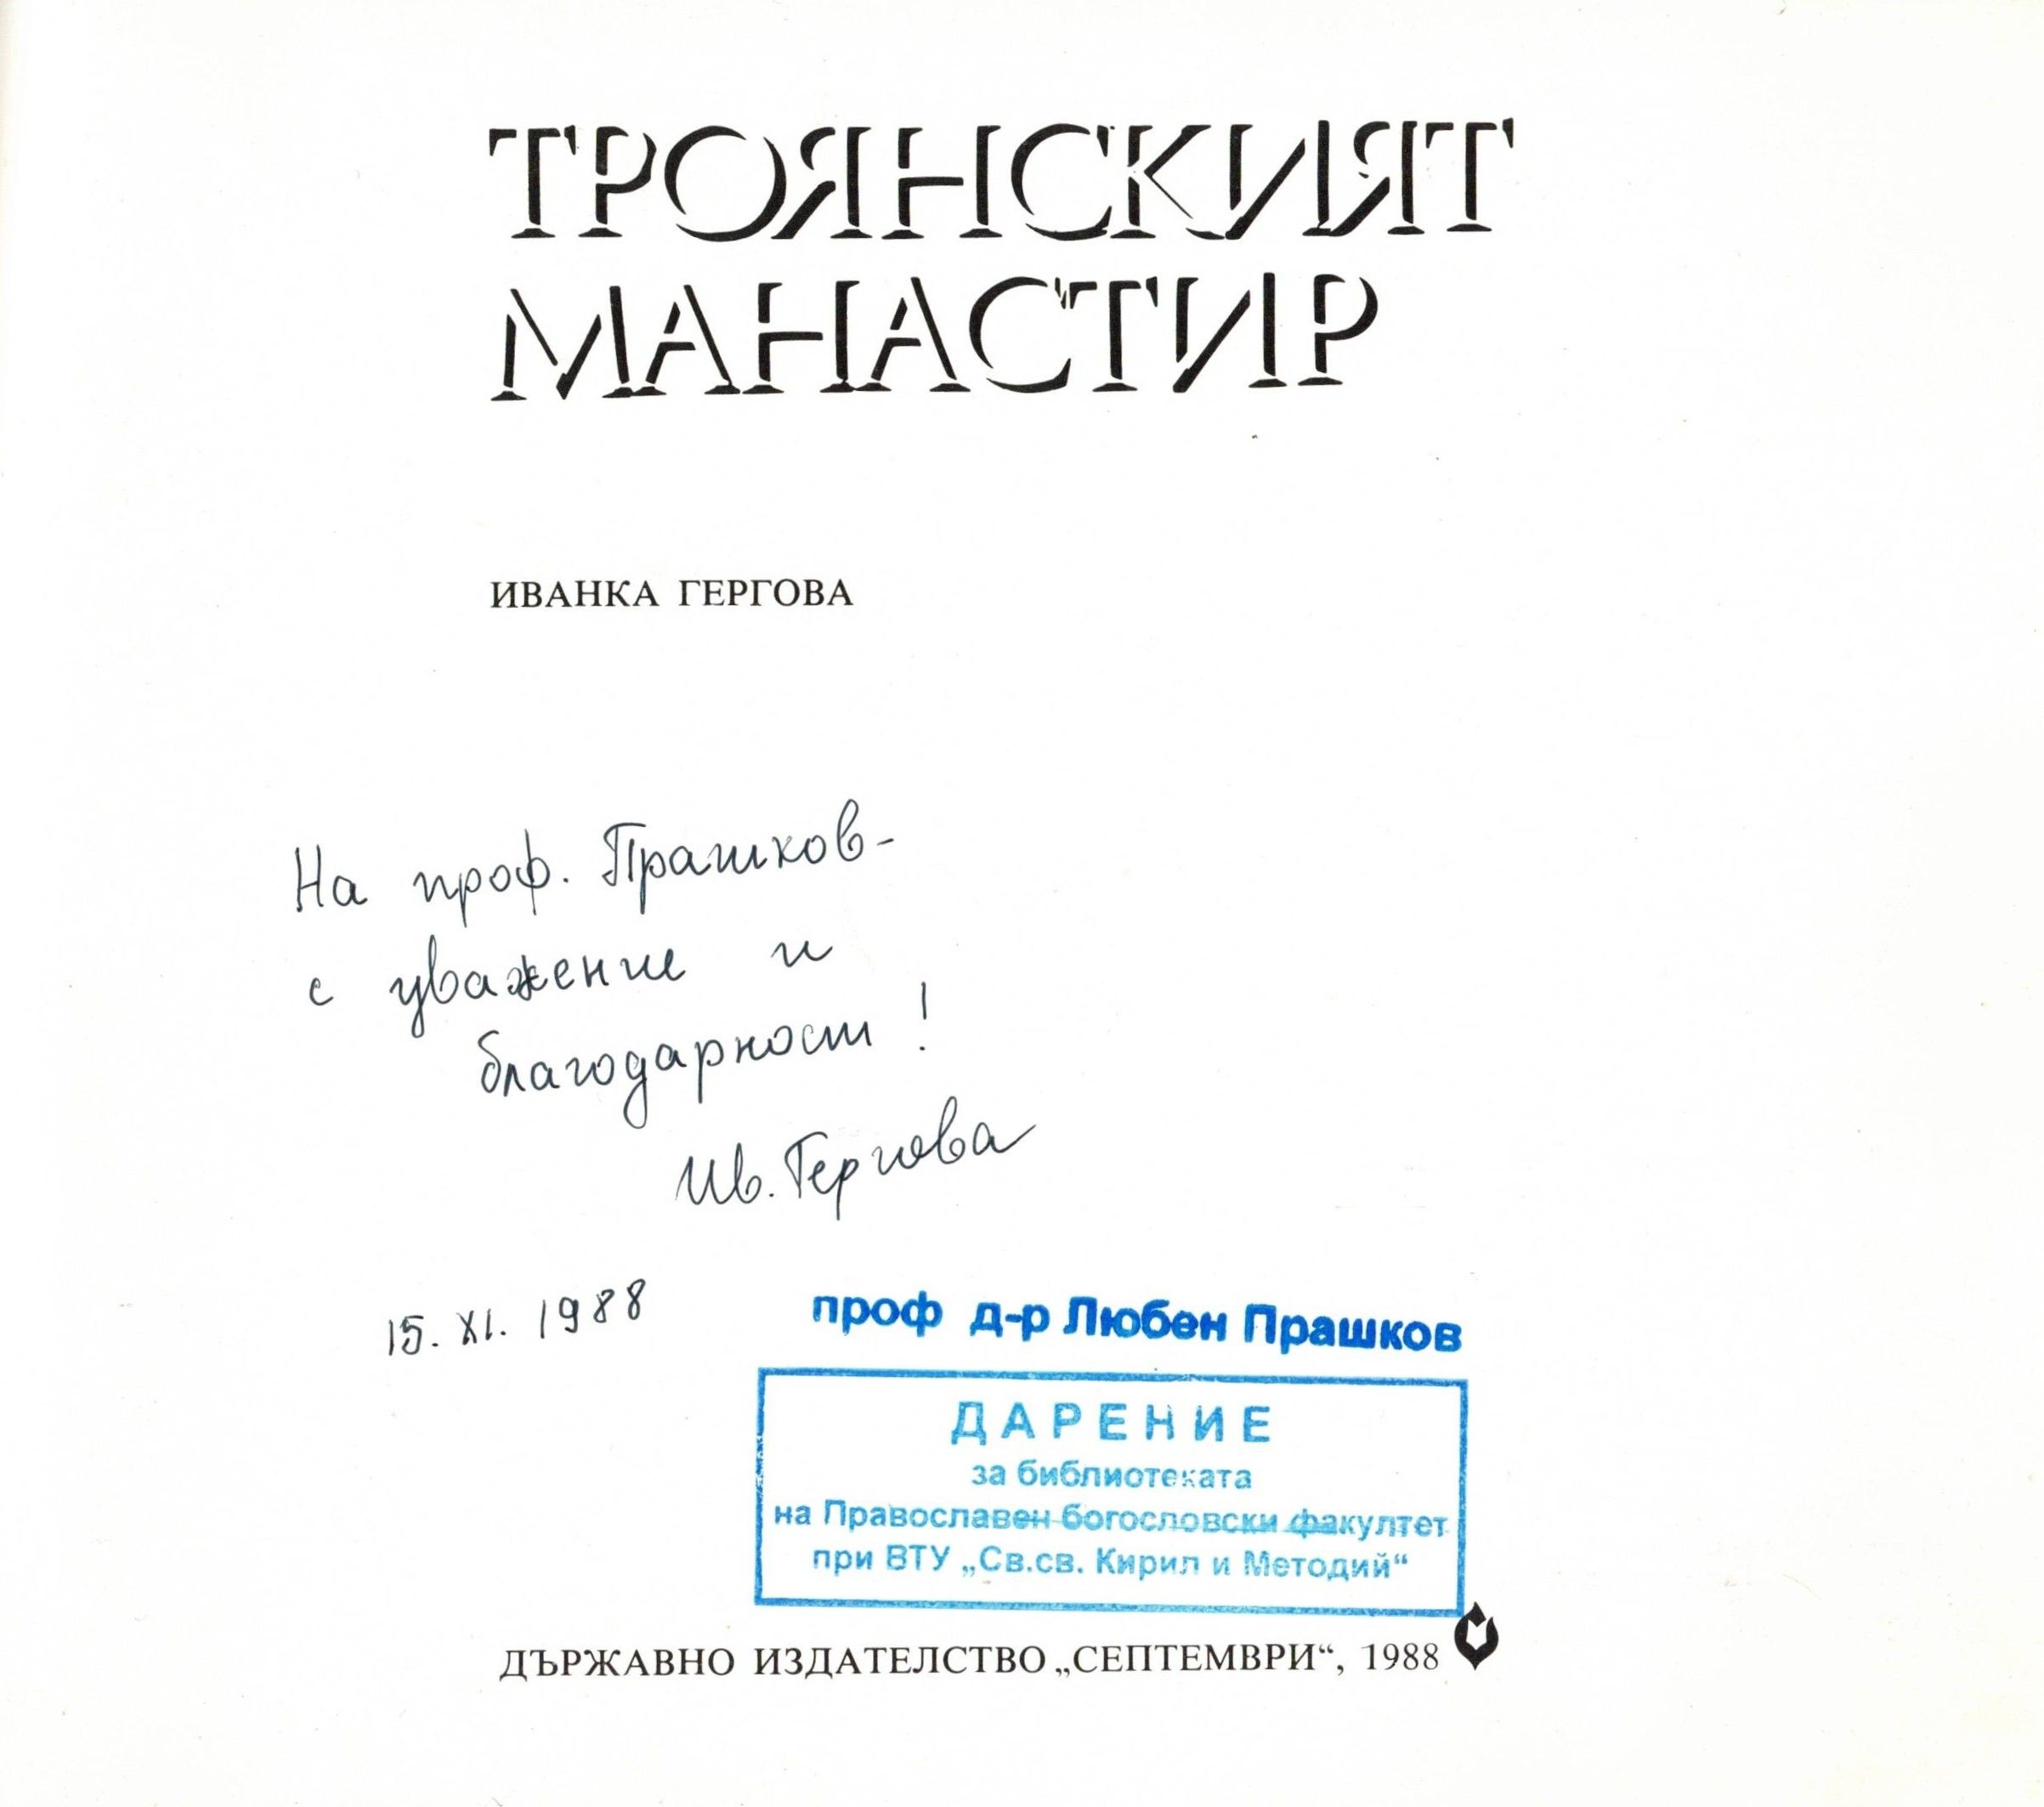 ТРОЯНСКИЯТ
МАНАСТИР
ИВАНКА ГЕРГОВА
На проф. Прашков-
с уважение и
благодарност!
Ив. Гергова
15. XI. 1988
проф д-р Любен Прашков
ДАРЕНИЕ
за библиотеката
на Православен богословски факултет
при ВТУ „Св.св. Кирил и Методий“
ДЪРЖАВНО ИЗДАТЕЛСТВО „СЕПТЕМВРИ“, 1988